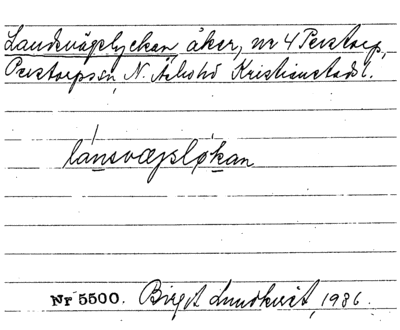 Landsvägslyckan, åker, nr 4 Perstorp,
Perstorps sn, N. Åsbohd Kristianstads l.
lánsvægsløkan
Nr 5500. Birgit Lundkvist, 1986.